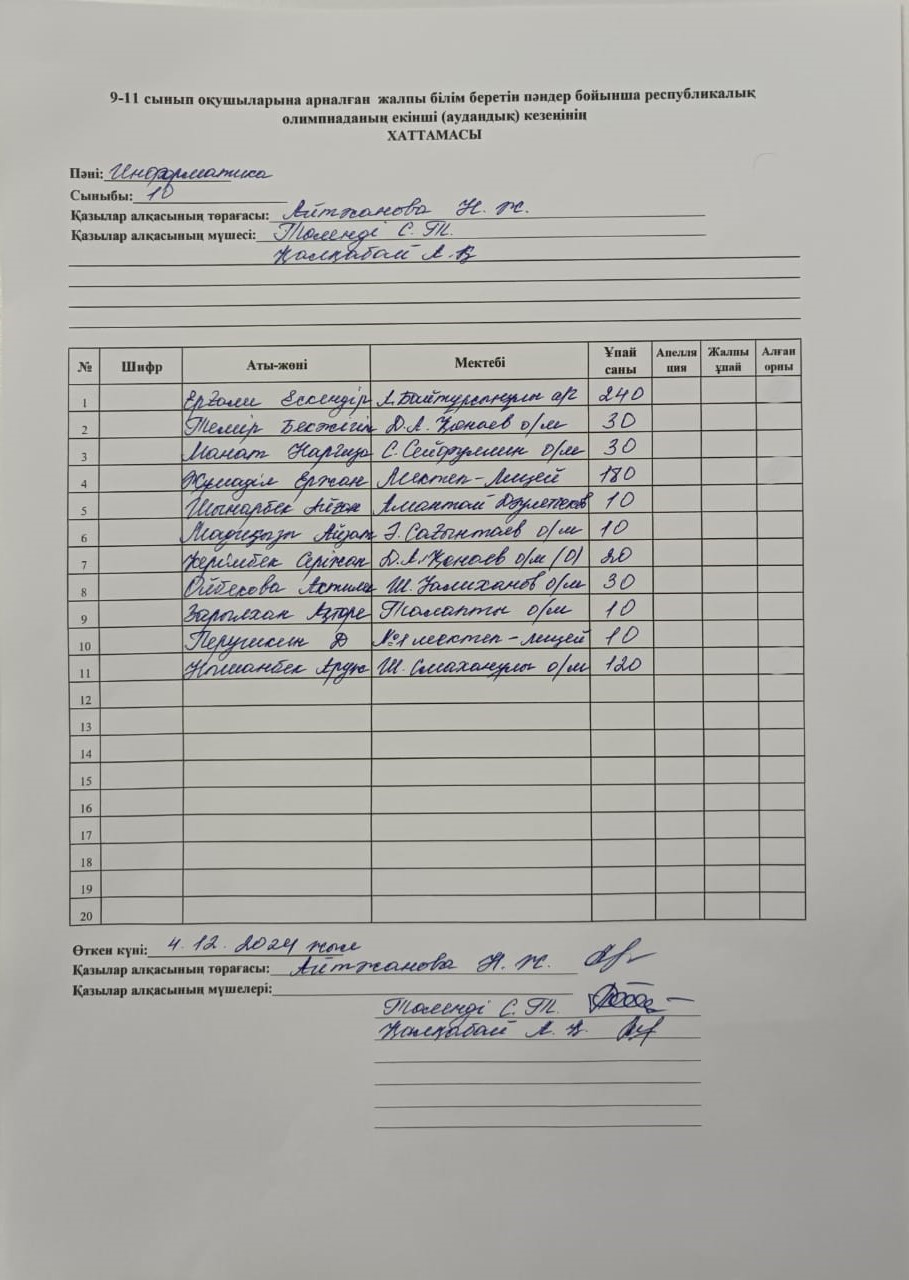 9-11 сынып оқушыларына арналған жалпы білім беретін пәндер бойынша республикалық
олимпиаданың екінші (аудандық) кезеңінің
ХАТТАМАСЫ
Пәні: Информатика
Сыныбы: 10
Қазылар алқасының төрағасы: Айтжанова Н. Ж.
Қазылар алқасының мүшесі: Төленді С. Т.
Қалқабай А. Қ
№ Шифр Аты-жөні Мектебі Ұпай саны Апелляция Жалпы ұпай Алған орны
1 Ерғали Ескендір А. Байтұрсынұлы 240
2 Темір Бекжігіт Д.А. Қонаев о/м 30
3 Манат Наргиза С. Сейфуллин о/м 30
4 Жұмаділ Ержан Мектеп-Лицей 180
5 Шынарбек Амантай 10
6 Айдана Ә. Сағынтаев о/м 10
7 Керімбек Серікжан Д.А. Қонаев о/м (0) 20
8 Ойбекова Ш. Уалиханов о/м 30
9 Зарылхан Талапты о/м 10
10 Перушкин Д №1 мектеп-лицей 10
11 Ш. Смаханұлы о/м 120
12
13
14
15
16
17
18
19
20
Өткен күні: 4. 12. 2024 жыл
Қазылар алқасының төрағасы: Айтжанова Н. Ж.
Қазылар алқасының мүшелері:
Төленді С. Т.
Қалқабай А. Қ.